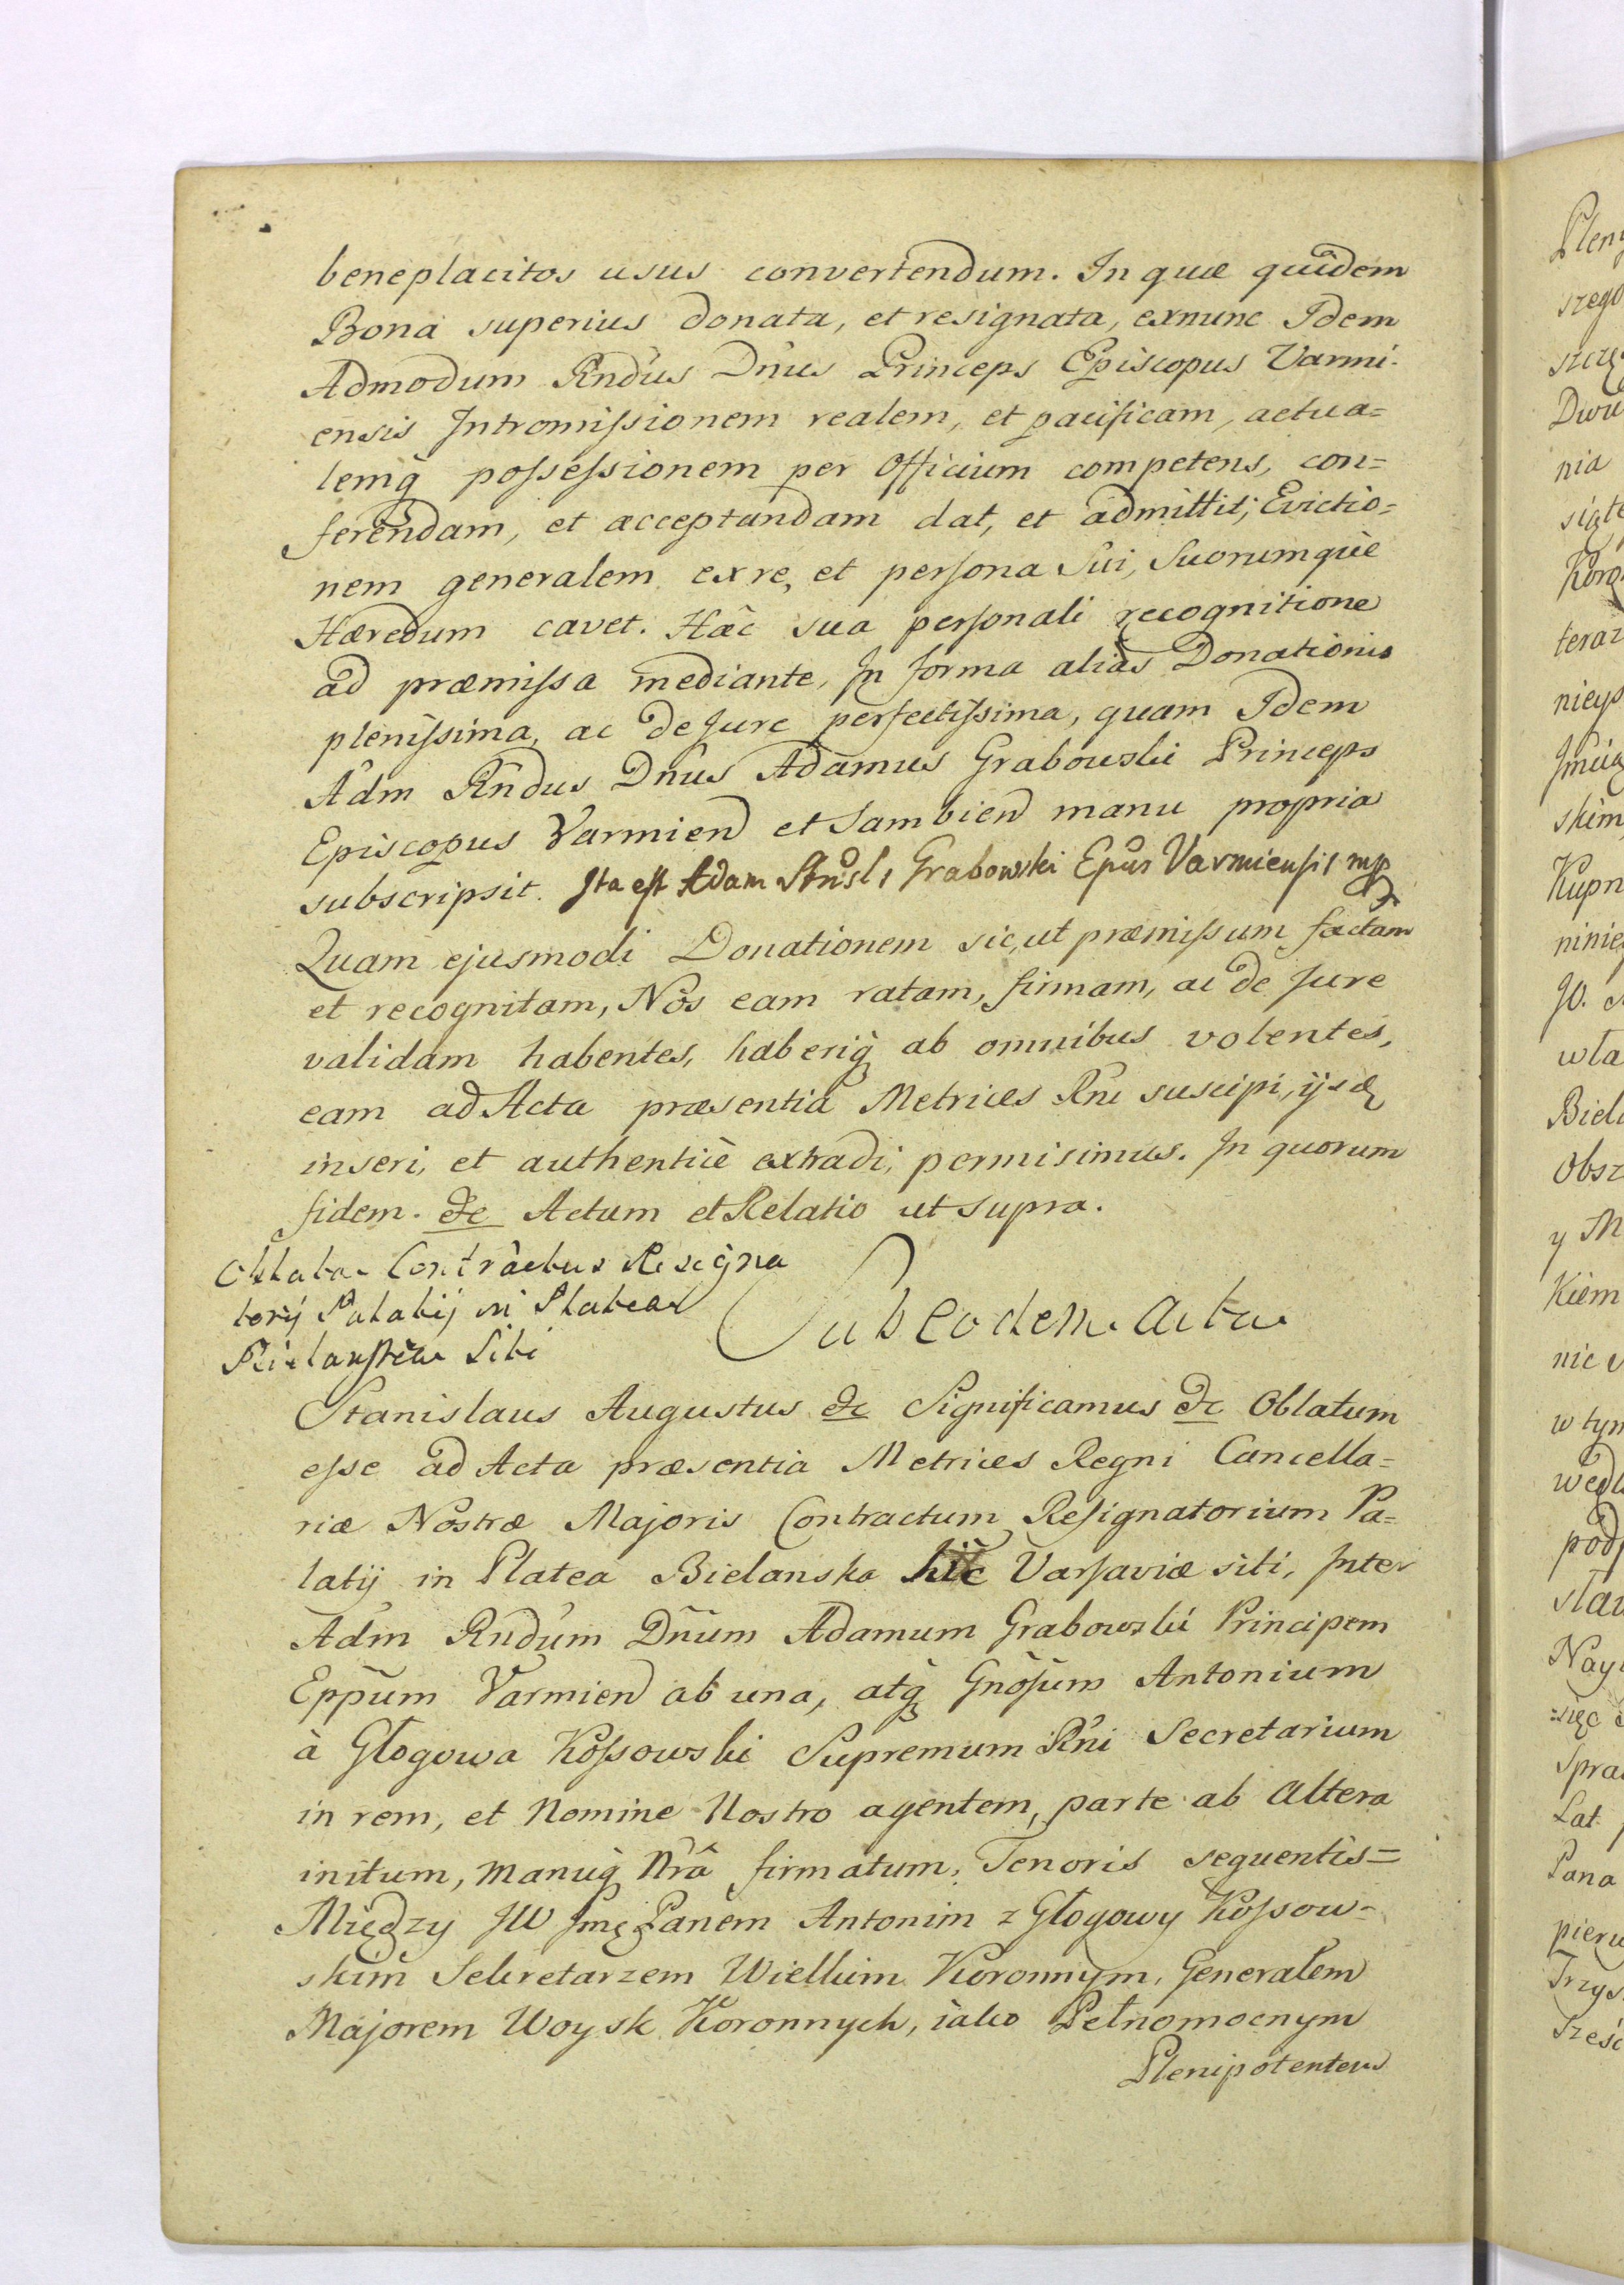 beneplacitos usus convertendum. In quæ quidem
Bona superius donata, et resignata, exnunc Idem
Admodum Rndus Dnus Princeps Episcopus Varmi-
ensis Intromissionem realem, et pacificam, actua=
lemq̃ possessionem per Officium competens, con=
ferendam, et acceptandam dat, et admittit; Evictio=
nem generalem exre, et persona Sui, Suorumque
Hæredum cavet. Hâc sua personali recognitione
ad præmissa mediante, In forma alias Donationis
plenissima, ac de Jure perfectissima, quam Idem
Adm Rndus Dnus Adamus Grabowski Princeps
Episcopus Varmien et Sambien manu propria
subscripsit. Ita est Adam Grabowski Epus Varmiensis mp
Quam ejusmodi Donationem sic, ut præmissum factam
et recognitam, Nos eam ratam, firmam, ac de Jure
validam habentes, haberiq̃ ab omnibus volentes,
eam ad Acta præsentia Metrices Rni suscipi, ijsq̃
inseri, et authenticè extradi, permisimus. In quorum
fidem. &c Actum et Relatio ut supra.
Oblata Contractus Resigna
torij Palatij in Platea
Bielanska Siti
Sub eodem actu
Stanislaus Augustus &c Significamus &c Oblatum
esse ad Acta præsentia Metrices Regni Cancella=
riæ Nostræ Majoris Contractum Resignatorium Pa=
latij in Platea Bielanska hic Varsaviæ siti, Inter
Adm Rndum Dnum Adamum Grabowski Principem
Eppum Varmien ab una, atq̃ Gnosum Antonium
à Głogowa Kossowski Supremum Rni Secretarium
in rem, et Nomine Nostro agentem, parte ab altera
initum, manuq̃ Nrâ firmatum, Tenoris sequentis=
Między JW Jmę Panem Antonim z Głogowy Kossow=
skim Sekretarzem Wielkim Koronnym, Generałem
Majorem Woysk Koronnych, iako Pełnomocnym
Plenipotentem